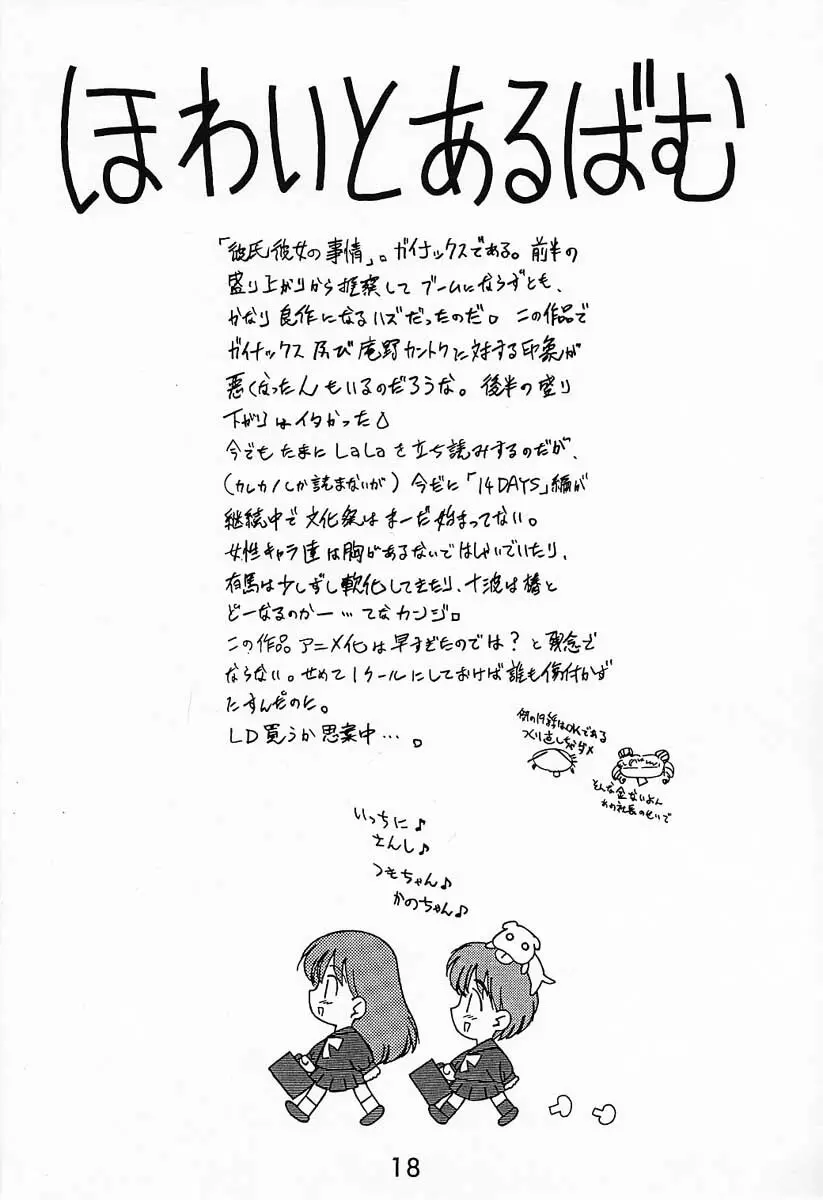 ほわいとあるばむ
「彼氏彼女の事情」。ガイナックスである。前半の
盛り上がりから推察して ブームにならずとも、
かなり良作になるハズだったのだ。この作品で
ガイナックス及び庵野カントクに対する印象が
悪くなったんもいるのだろうな。後半の盛り
下がりはイタかった
今でもたまにLaLaを立ち読みするのだが、
(カレカノしか読まないが)今だに「14DAYS」編が
継続中で文化祭はまーだ始まってない。
女性キャラ達は胸があるないではしゃいでいたり、
有馬は少しずし軟化してきたり、十波は椿と
どーなるのかー…てなカンジ。
この作品アニメ化は早すぎたのでは?と残念で
ならない。せめて1クールにしておけば誰も傷付かず
たすんだのに。
LD買うか思案中…。
例の19話はOKである
つくり直しちゃダメ
そんな金ないよん
あの社長のせいで
いっちに♪
さんし♪
つもちゃん♪
かのちゃん♪
18